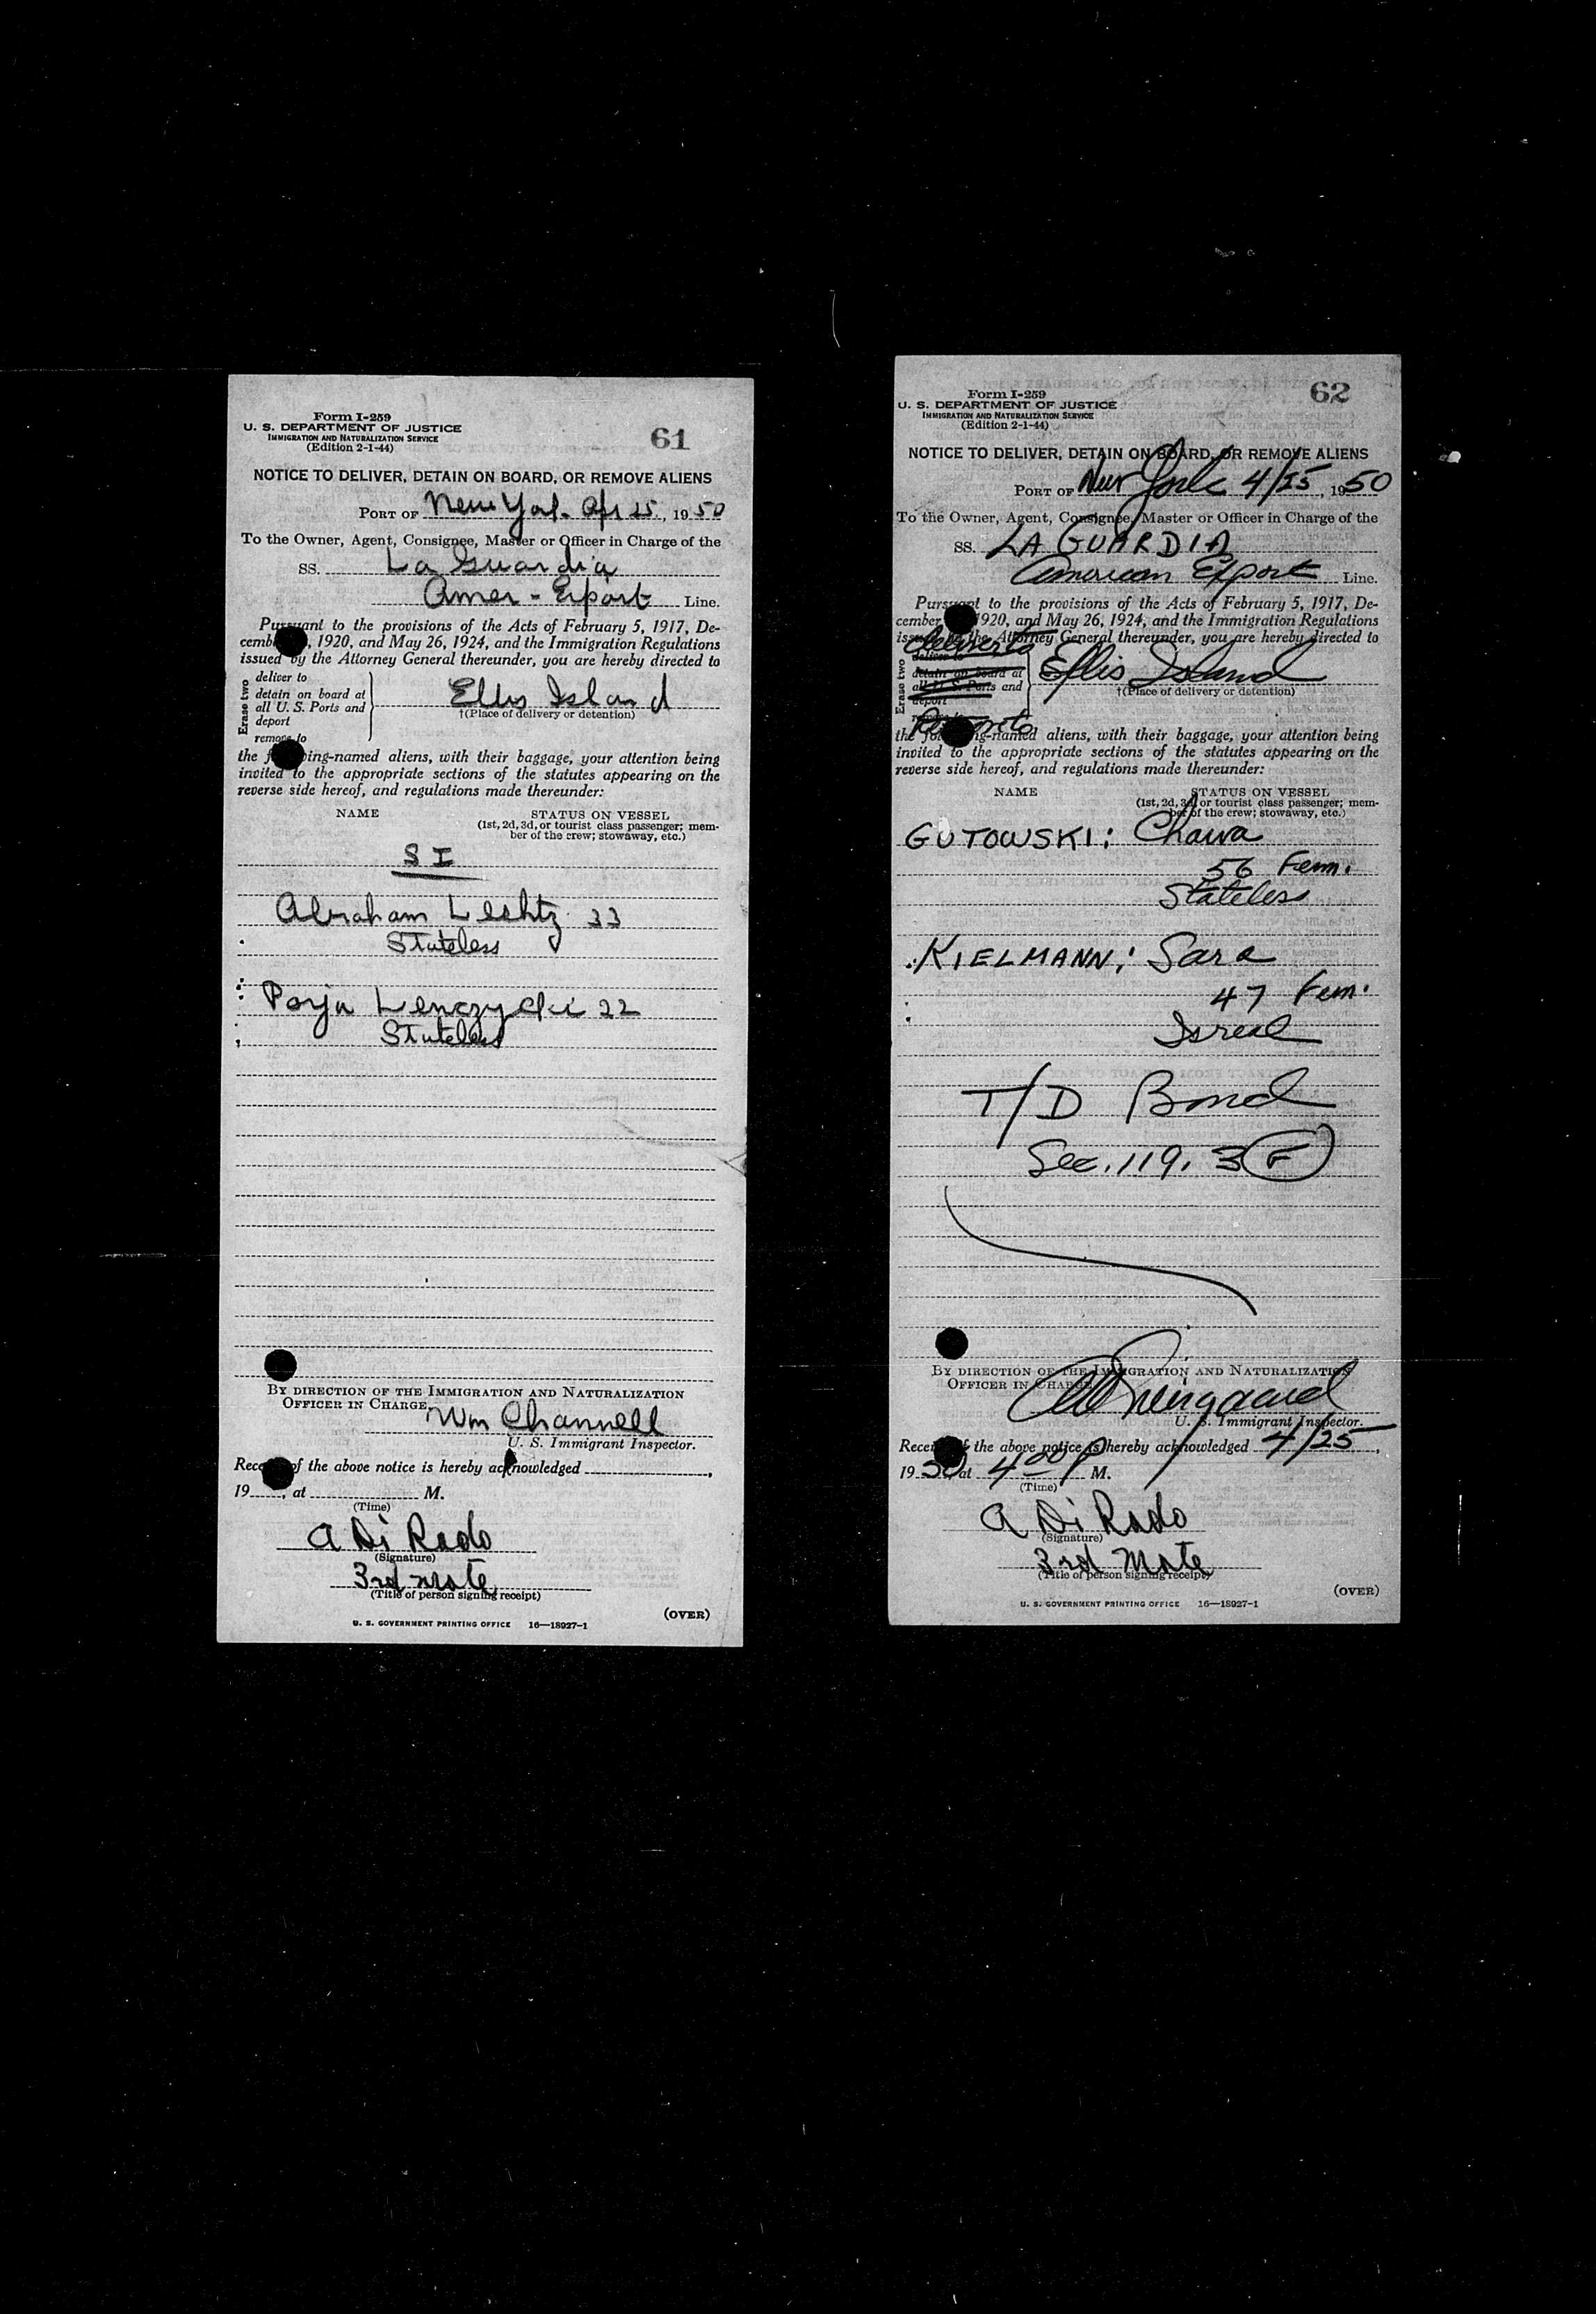 Form I-259
U. S. DEPARTMENT OF JUSTICE
IMMIGRATION AND NATURALIZATION SERVICE
(Edition 2-1-44)
61
NOTICE TO DELIVER, DETAIN ON BOARD, OR REMOVE ALIENS
PORT OF New York Apr 25, 1950
To the Owner, Agent, Consignee, Master or Officer in Charge of the
SS. La Guardia
Amer-Export Line.
Pursuant to the provisions of the Acts of February 5, 1917, De-
cemb , 1920, and May 26, 1924, and the Immigration Regulations
issued by the Attorney General thereunder, you are hereby directed to
Erase two
deliver to
detain on board at
all U. S. Ports and
deport
remove to
Ellis Island
†(Place of delivery or detention)
the f ing-named aliens, with their baggage, your attention being
invited to the appropriate sections of the statutes appearing on the
reverse side hereof, and regulations made thereunder:
NAME STATUS ON VESSEL
(1st, 2d, 3d, or tourist class passenger; mem-
ber of the crew; stowaway, etc.)
S I
Abraham Leshtz 33
Stateless
Lenczycki 22
Stateless
BY DIRECTION OF THE IMMIGRATION AND NATURALIZATION
OFFICER IN CHARGE,
Wm Channell
U. S. Immigrant Inspector.
Rece of the above notice is hereby acknowledged ,
19 , at M.
(Time)
A Di Rado
(Signature)
3rd mate
(Title of person signing receipt)
(OVER)
U. S. GOVERNMENT PRINTING OFFICE 16—18927-1
Form I-259
U. S. DEPARTMENT OF JUSTICE
IMMIGRATION AND NATURALIZATION SERVICE
(Edition 2-1-44)
62
NOTICE TO DELIVER, DETAIN ON BOARD, OR REMOVE ALIENS
PORT OF New York 4/25, 1950
To the Owner, Agent, Consignee, Master or Officer in Charge of the
SS. LA GUARDIA
American Export Line.
Pursuant to the provisions of the Acts of February 5, 1917, De-
cember 1920, and May 26, 1924, and the Immigration Regulations
issued by the Attorney General thereunder, you are hereby directed to
Deliver to
Erase two
deliver to
detain on board at
all U. S. Ports and
deport
remove to
Remove to
Ellis Island
†(Place of delivery or detention)
the fo ng-named aliens, with their baggage, your attention being
invited to the appropriate sections of the statutes appearing on the
reverse side hereof, and regulations made thereunder:
NAME STATUS ON VESSEL
(1st, 2d, 3d, or tourist class passenger; mem-
ber of the crew; stowaway, etc.)
GUTOWSKI: Chawa
56 Fem.
Stateless
KIELMANN: Sara
47 Fem.
Isreal
T/D Bond
Sec. 119. 3 (F)
BY DIRECTION OF THE IMMIGRATION AND NATURALIZATION
OFFICER IN CHARGE
U. S. Immigrant Inspector.
Rece f the above notice is hereby acknowledged 4/25,
1950 at 4 00 P M.
(Time)
A Di Rado
(Signature)
3rd Mate
(Title of person signing receipt)
(OVER)
U. S. GOVERNMENT PRINTING OFFICE 16—18927-1